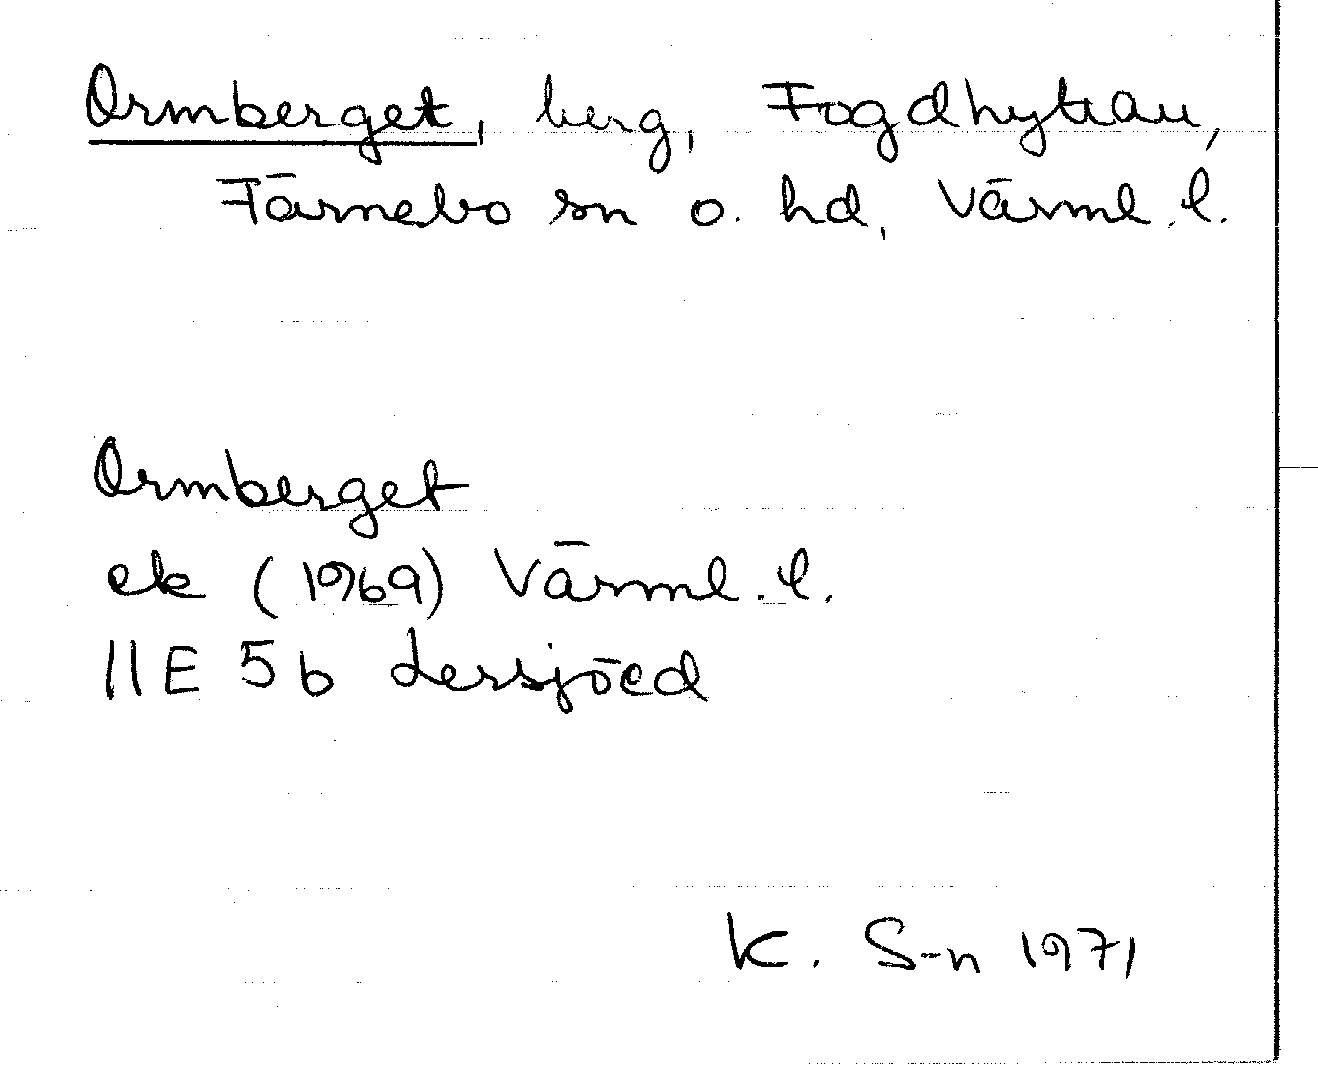 Ormberget, berg, Fogdhyttan,
Färnebo sn o. hd, Värml. l.
Ormberget
ek (1969) Värml. l.
11E 5b Lersjöed
K. S-n 1971